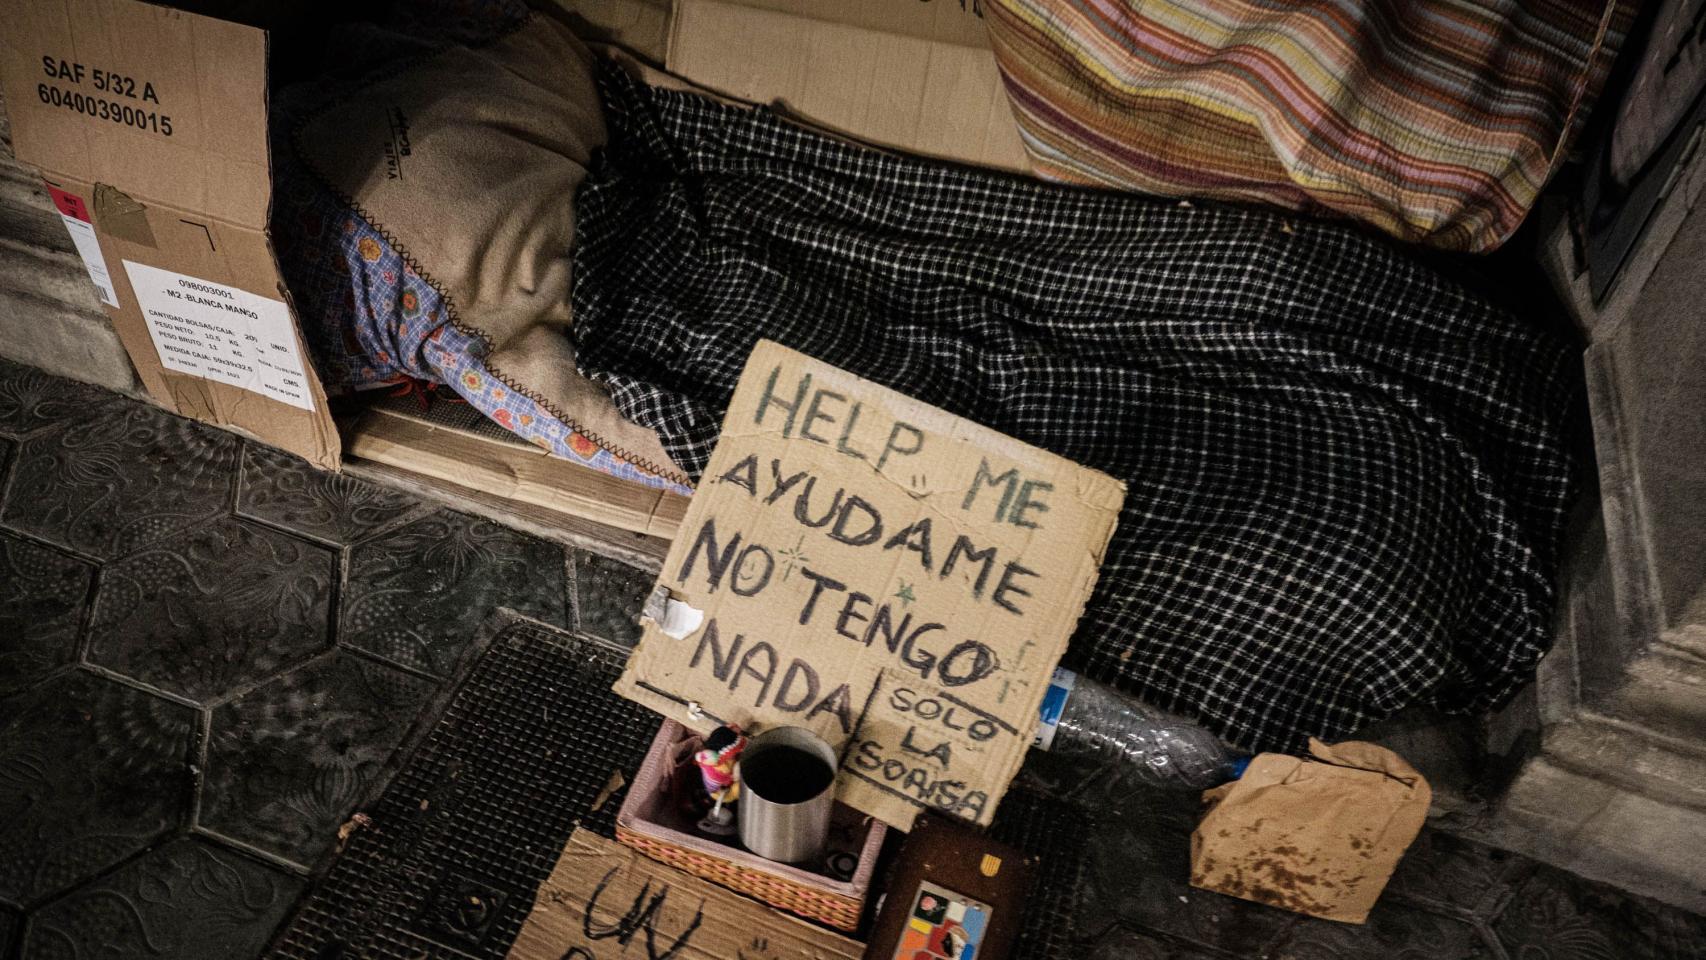 SAF 5/32 A
60400390015
098003001
- M2 -BLANCA MANGO
CANTIDAD BOLSAS/CAJA: 200 UNID.
PESO NETO: 10.5 KG.
PESO BRUTO: 11 KG.
MEDIDA CAJA: 59x39x32.5 CMS.
MADE IN SPAIN
VIAJES
HELP ME
AYUDAME
NO TENGO
NADA
SOLO
LA
SORISA
UN